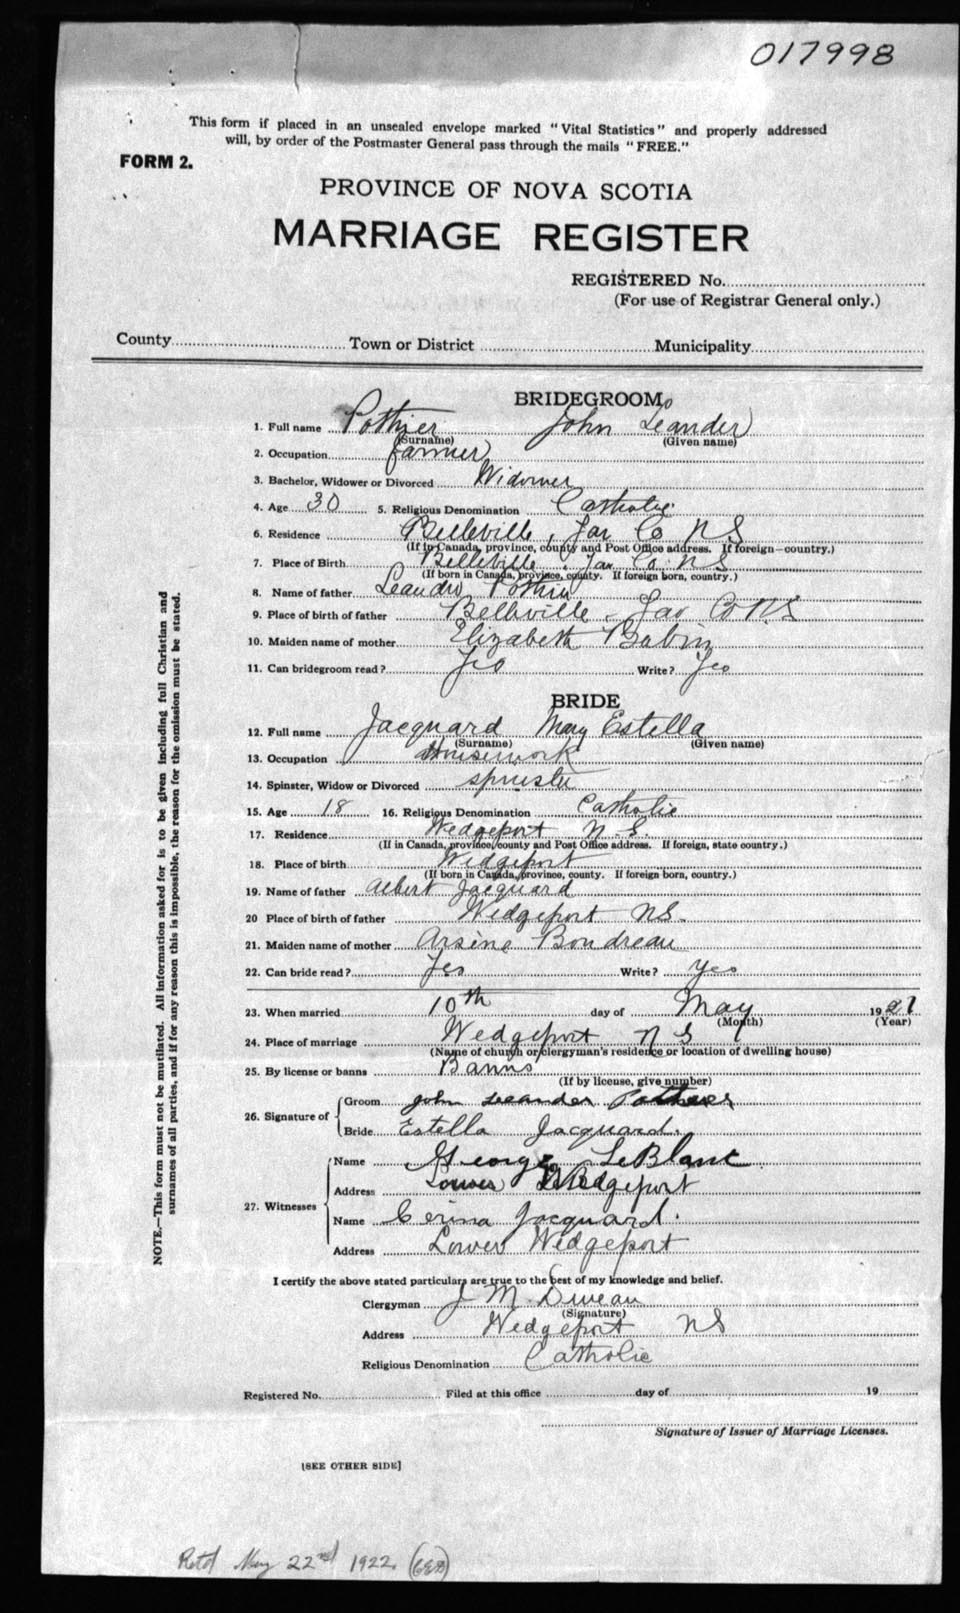 017998
This form if placed in an unsealed envelope marked "Vital Statistics" and properly addressed
will, by order of the Postmaster General pass through the mails "FREE."
FORM 2.
PROVINCE OF NOVA SCOTIA
MARRIAGE REGISTER
REGISTERED No.
(For use of Registrar General only.)
County Town or District Municipality
BRIDEGROOM
1. Full name Pothier John Leander
(Surname) (Given name)
2. Occupation farmer
3. Bachelor, Widower or Divorced Widower
4. Age 30 5. Religious Denomination Catholic
6. Residence Belleville, Yar Co NS
(If in Canada, province, county and Post Office address. If foreign—country.)
7. Place of Birth Belleville, Yar Co. NS
(If born in Canada, province, county. If foreign born, country.)
8. Name of father Leander Pothier
9. Place of birth of father Belleville Yar Co NS
10. Maiden name of mother Elizabeth Babin
11. Can bridegroom read? Yes Write? Yes
BRIDE
12. Full name Jacquard May Estella
(Surname) (Given name)
13. Occupation Housework
14. Spinster, Widow or Divorced spinster
15. Age 18 16. Religious Denomination Catholic
17. Residence Wedgeport N.S.
(If in Canada, province, county and Post Office address. If foreign, state country.)
18. Place of birth Wedgeport
(If born in Canada, province, county. If foreign born, country.)
19. Name of father Albert Jacquard
20 Place of birth of father Wedgeport NS.
21. Maiden name of mother Arsène Boudreau
22. Can bride read? Yes Write? Yes
23. When married 10th day of May 1921
(Month) (Year)
24. Place of marriage Wedgeport N S
(Name of church or clergyman's residence or location of dwelling house)
25. By license or banns Banns
(If by license, give number)
26. Signature of Groom John Leander Pothier
Bride Estella Jacquard.
27. Witnesses Name George LeBlanc
Address Lower Wedgeport
Name Cerina Jacquard.
Address Lower Wedgeport
I certify the above stated particulars are true to the best of my knowledge and belief.
Clergyman J M Duveau
(Signature)
Address Wedgeport NS
Religious Denomination Catholic
Registered No. Filed at this office day of 19
Signature of Issuer of Marriage Licenses.
[SEE OTHER SIDE]
Retd May 22nd 1922
NOTE.—This form must not be mutilated. All information asked for is to be given including full Christian and
surnames of all parties, and if for any reason this is impossible, the reason for the omission must be stated.